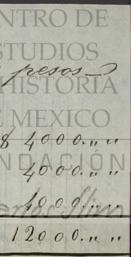 NTRO DE
STUDIOS
pesos
HISTORIA
E MEXICO
8 4000 ,, ,,
NDACIÓN
4000 ,, ,,
4000 ,, ,,
12000 ,, ,,